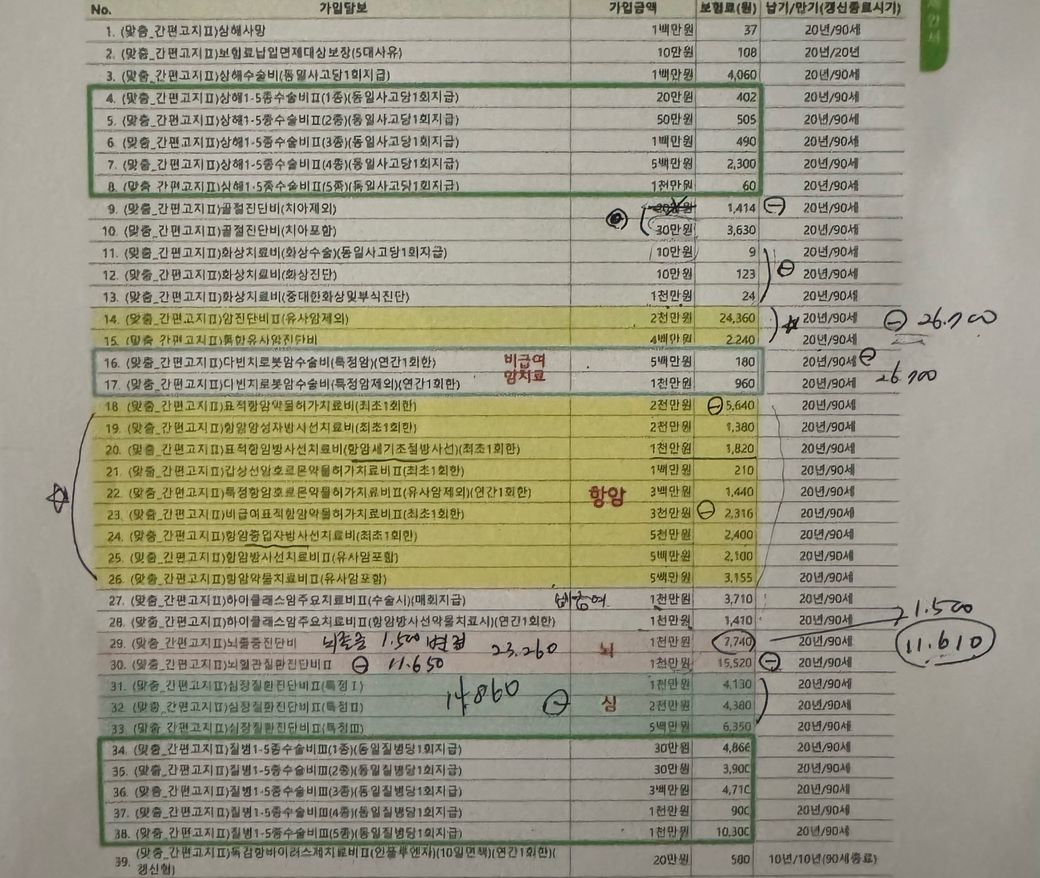 제안서
No. 가입담보 가입금액 보험료(원) 납기/만기(갱신종료시기)
1. (맞춤_간편고지Ⅱ)상해사망 1백만원 37 20년/90세
2. (맞춤_간편고지Ⅱ)보험료납입면제대상보장(5대사유) 10만원 108 20년/20년
3. (맞춤_간편고지Ⅱ)상해수술비(동일사고당1회지급) 1백만원 4,060 20년/90세
4. (맞춤_간편고지Ⅱ)상해1-5종수술비Ⅱ(1종)(동일사고당1회지급) 20만원 402 20년/90세
5. (맞춤_간편고지Ⅱ)상해1-5종수술비Ⅱ(2종)(동일사고당1회지급) 50만원 505 20년/90세
6. (맞춤_간편고지Ⅱ)상해1-5종수술비Ⅱ(3종)(동일사고당1회지급) 1백만원 490 20년/90세
7. (맞춤_간편고지Ⅱ)상해1-5종수술비Ⅱ(4종)(동일사고당1회지급) 5백만원 2,300 20년/90세
8. (맞춤_간편고지Ⅱ)상해1-5종수술비Ⅱ(5종)(동일사고당1회지급) 1천만원 60 20년/90세
9. (맞춤_간편고지Ⅱ)골절진단비(치아제외) 1,414 20년/90세
10. (맞춤_간편고지Ⅱ)골절진단비(치아포함) 30만원 3,630 20년/90세
11. (맞춤_간편고지Ⅱ)화상치료비(화상수술)(동일사고당1회지급) 10만원 9 20년/90세
12. (맞춤_간편고지Ⅱ)화상치료비(화상진단) 10만원 123 20년/90세
13. (맞춤_간편고지Ⅱ)화상치료비(중대한화상및부식진단) 1천만원 24 20년/90세
14. (맞춤_간편고지Ⅱ)암진단비Ⅱ(유사암제외) 2천만원 24,360 20년/90세 26.700
15. (맞춤_간편고지Ⅱ)통합유사암진단비 4백만원 2,240 20년/90세
16. (맞춤_간편고지Ⅱ)다빈치로봇암수술비(특정암)(연간1회한) 비급여 5백만원 180 20년/90세
17. (맞춤_간편고지Ⅱ)다빈치로봇암수술비(특정암제외)(연간1회한) 암치료 1천만원 960 20년/90세 26.700
18. (맞춤_간편고지Ⅱ)표적항암약물허가치료비(최초1회한) 2천만원 5,640 20년/90세
19. (맞춤_간편고지Ⅱ)항암양성자방사선치료비(최초1회한) 2천만원 1,380 20년/90세
20. (맞춤_간편고지Ⅱ)표적항암방사선치료비(항암세기조절방사선)(최초1회한) 1천만원 1,820 20년/90세
21. (맞춤_간편고지Ⅱ)갑상선암호르몬약물허가치료비Ⅱ(최초1회한) 1백만원 210 20년/90세
22. (맞춤_간편고지Ⅱ)특정항암호르몬약물허가치료비Ⅱ(유사암제외)(연간1회한) 항암 3백만원 1,440 20년/90세
23. (맞춤_간편고지Ⅱ)비급여표적항암약물허가치료비Ⅱ(최초1회한) 3천만원 2,316 20년/90세
24. (맞춤_간편고지Ⅱ)항암중입자방사선치료비(최초1회한) 5천만원 2,400 20년/90세
25. (맞춤_간편고지Ⅱ)항암방사선치료비Ⅱ(유사암포함) 5백만원 2,100 20년/90세
26. (맞춤_간편고지Ⅱ)항암약물치료비Ⅱ(유사암포함) 5백만원 3,155 20년/90세
27. (맞춤_간편고지Ⅱ)하이클래스암주요치료비Ⅱ(수술시)(매회지급) 비급여 1천만원 3,710 20년/90세
28. (맞춤_간편고지Ⅱ)하이클래스암주요치료비Ⅱ(항암방사선약물치료시)(연간1회한) 1천만원 1,410 20년/90세 21.500
29. (맞춤_간편고지Ⅱ)뇌졸중진단비 뇌졸중 1.500 변경 23.260 뇌 1천만원 7,740 20년/90세 11.610
30. (맞춤_간편고지Ⅱ)뇌혈관질환진단비Ⅱ 11.650 1천만원 15,520 20년/90세
31. (맞춤_간편고지Ⅱ)심장질환진단비Ⅱ(특정Ⅰ) 1천만원 4,130 20년/90세
32. (맞춤_간편고지Ⅱ)심장질환진단비Ⅱ(특정Ⅱ) 14.860 심 2천만원 4,380 20년/90세
33. (맞춤_간편고지Ⅱ)심장질환진단비Ⅱ(특정Ⅲ) 5백만원 6,350 20년/90세
34. (맞춤_간편고지Ⅱ)질병1-5종수술비Ⅲ(1종)(동일질병당1회지급) 30만원 4,866 20년/90세
35. (맞춤_간편고지Ⅱ)질병1-5종수술비Ⅲ(2종)(동일질병당1회지급) 30만원 3,900 20년/90세
36. (맞춤_간편고지Ⅱ)질병1-5종수술비Ⅲ(3종)(동일질병당1회지급) 3백만원 4,710 20년/90세
37. (맞춤_간편고지Ⅱ)질병1-5종수술비Ⅲ(4종)(동일질병당1회지급) 1천만원 900 20년/90세
38. (맞춤_간편고지Ⅱ)질병1-5종수술비Ⅲ(5종)(동일질병당1회지급) 1천만원 10,300 20년/90세
39. (맞춤_간편고지Ⅱ)독감항바이러스제치료비Ⅱ(인플루엔자)(10일면책)(연간1회한)( 20만원 580 10년/10년(90세종료)
갱신형)